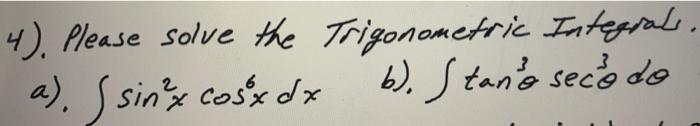 4). Please solve the Trigonometric Integrals.
a). ∫ sin²x cos⁶x dx b). ∫ tan³θ sec³θ dθ